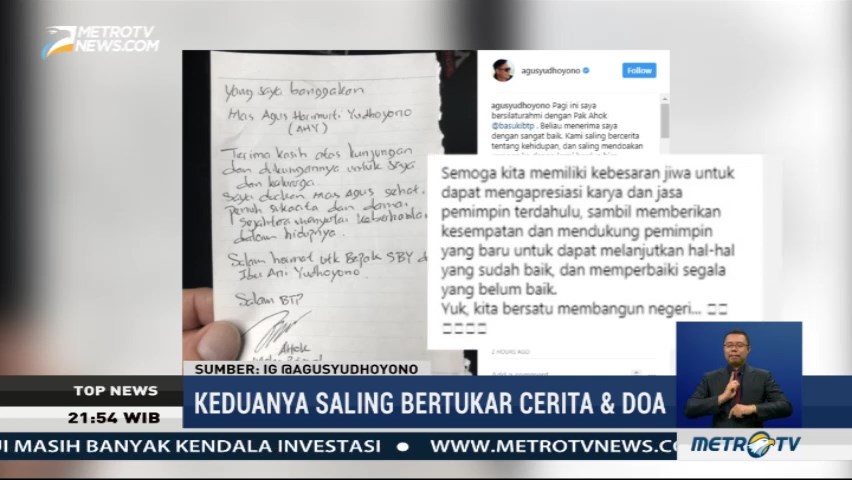 METROTV
NEWS.COM
Yang saya banggakan
Mas Agus Harimurti Yudhoyono
(AHY)
Terima kasih atas kunjungan
dan dukungannya untuk saya
dan keluarga.
Saya doakan Mas Agus sehat,
penuh sukacita dan damai
sejahtera menyertai
dalam hidupnya.
Salam hormat utk Bapak SBY
Ibu Ani Yudhoyono.
Salam BTP
AHOK
agusyudhoyono
Follow
agusyudhoyono Pagi ini saya
bersilaturahmi dengan Pak Ahok
@basukibtp . Beliau menerima saya
dengan sangat baik. Kami saling bercerita
tentang kehidupan, dan saling mendoakan
Semoga kita memiliki kebesaran jiwa untuk
dapat mengapresiasi karya dan jasa
pemimpin terdahulu, sambil memberikan
kesempatan dan mendukung pemimpin
yang baru untuk dapat melanjutkan hal-hal
yang sudah baik, dan memperbaiki segala
yang belum baik.
Yuk, kita bersatu membangun negeri...
2 HOURS AGO
SUMBER: IG @AGUSYUDHOYONO
TOP NEWS
KEDUANYA SALING BERTUKAR CERITA & DOA
21:54 WIB
UI MASIH BANYAK KENDALA INVESTASI • WWW.METROTVNEWS.C
METROTV